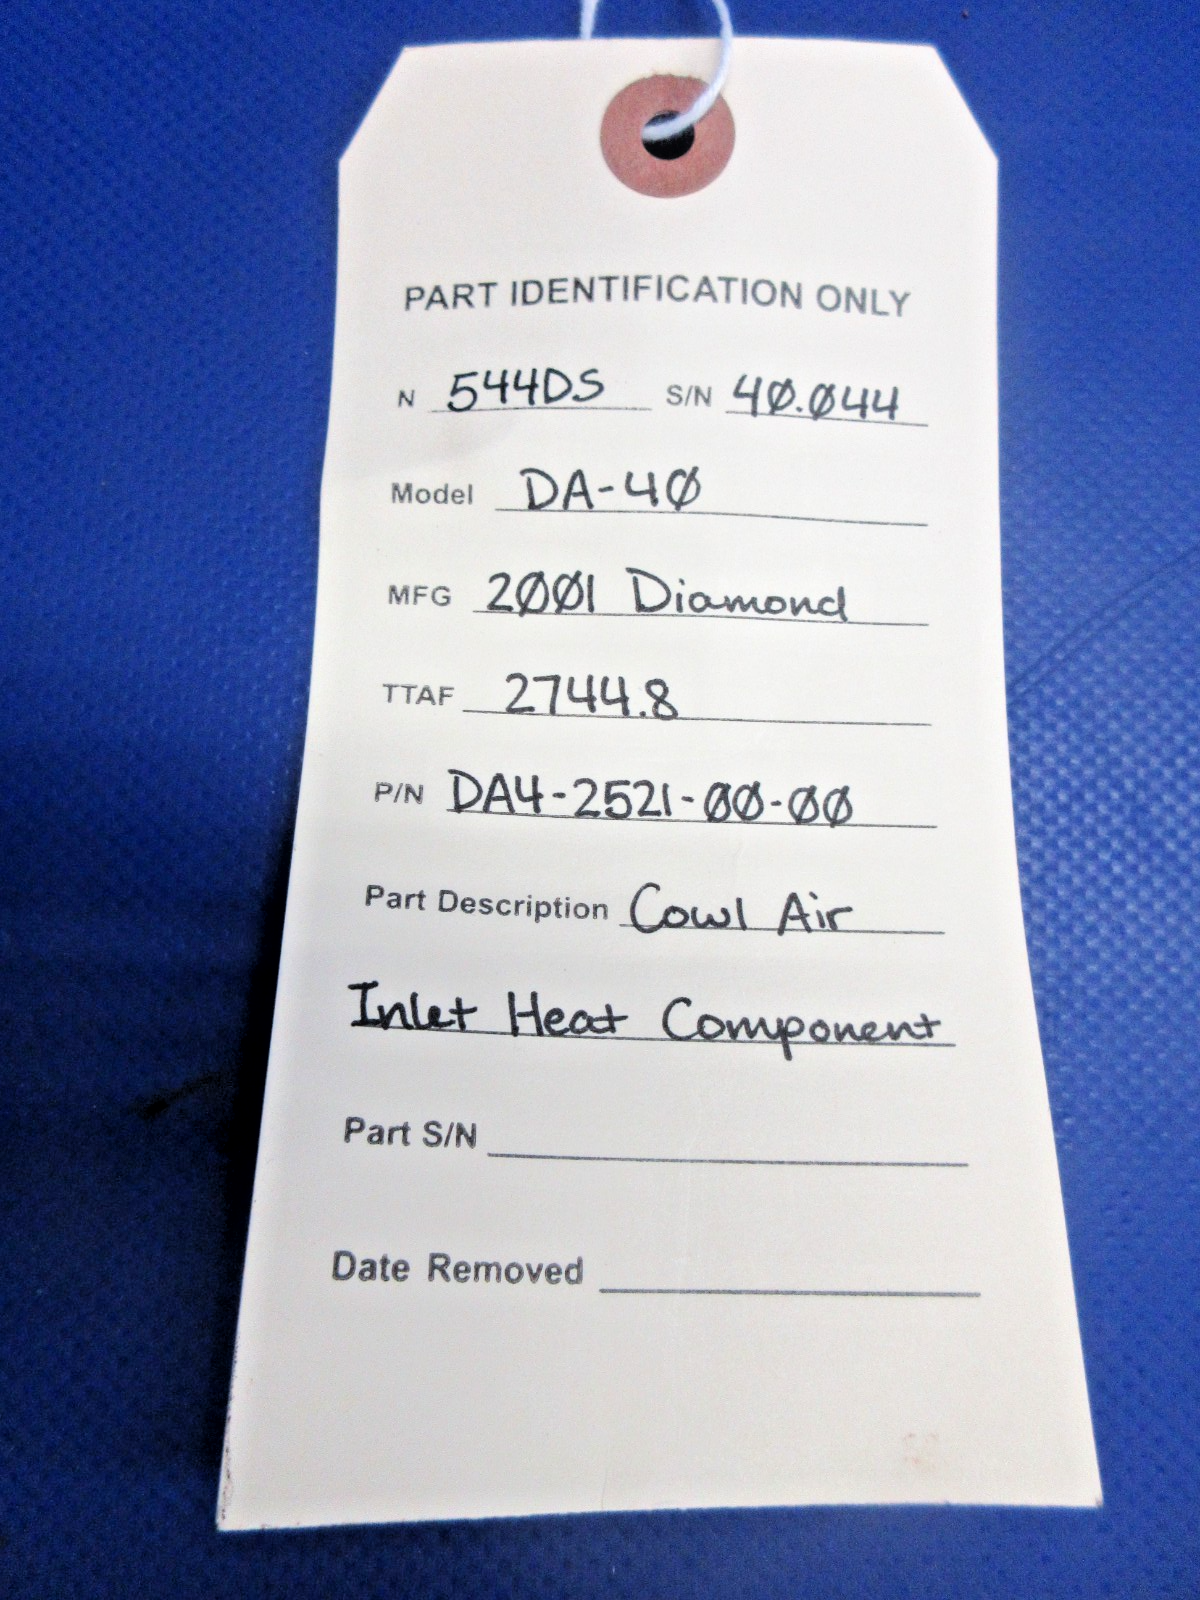 PART IDENTIFICATION ONLY
N 544DS S/N 40.044
Model DA-40
MFG 2001 Diamond
TTAF 2744.8
P/N DA4-2521-00-00
Part Description Cowl Air
Inlet Heat Component
Part S/N
Date Removed